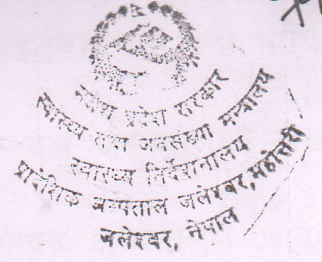 मधेश प्रदेश सरकार
स्वास्थ्य तथा जनसंख्या मन्त्रालय
स्वास्थ्य निर्देशनालय
प्रादेशिक अस्पताल जलेश्वर, महोत्तरी
जलेश्वर, नेपाल